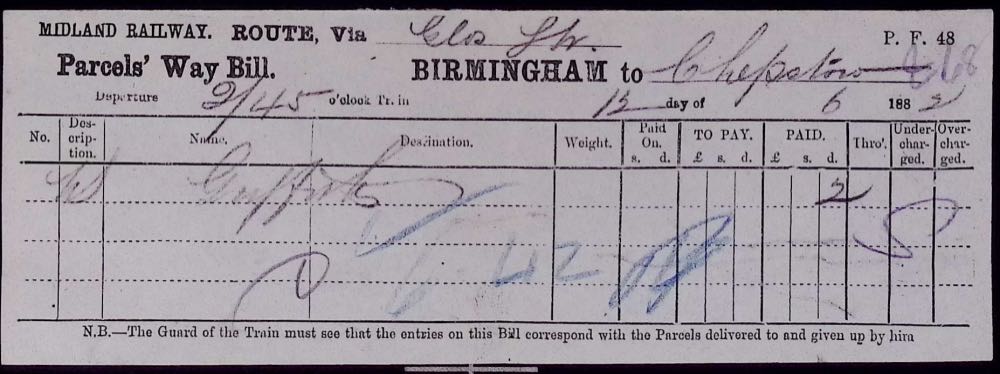 MIDLAND RAILWAY. ROUTE, Via Glos P. F. 48
Parcels' Way Bill. BIRMINGHAM to Chepstow
Departure 2/45 o'clock Tr. in 12 day of 6 1882
No. Des-crip-tion. Name. Destination. Weight. Paid On. s. d. TO PAY. £ s. d. PAID. £ s. d. Thro'. Under-char-ged. Over-char-ged.
Griffiths 2
N.B.—The Guard of the Train must see that the entries on this Bill correspond with the Parcels delivered to and given up by him